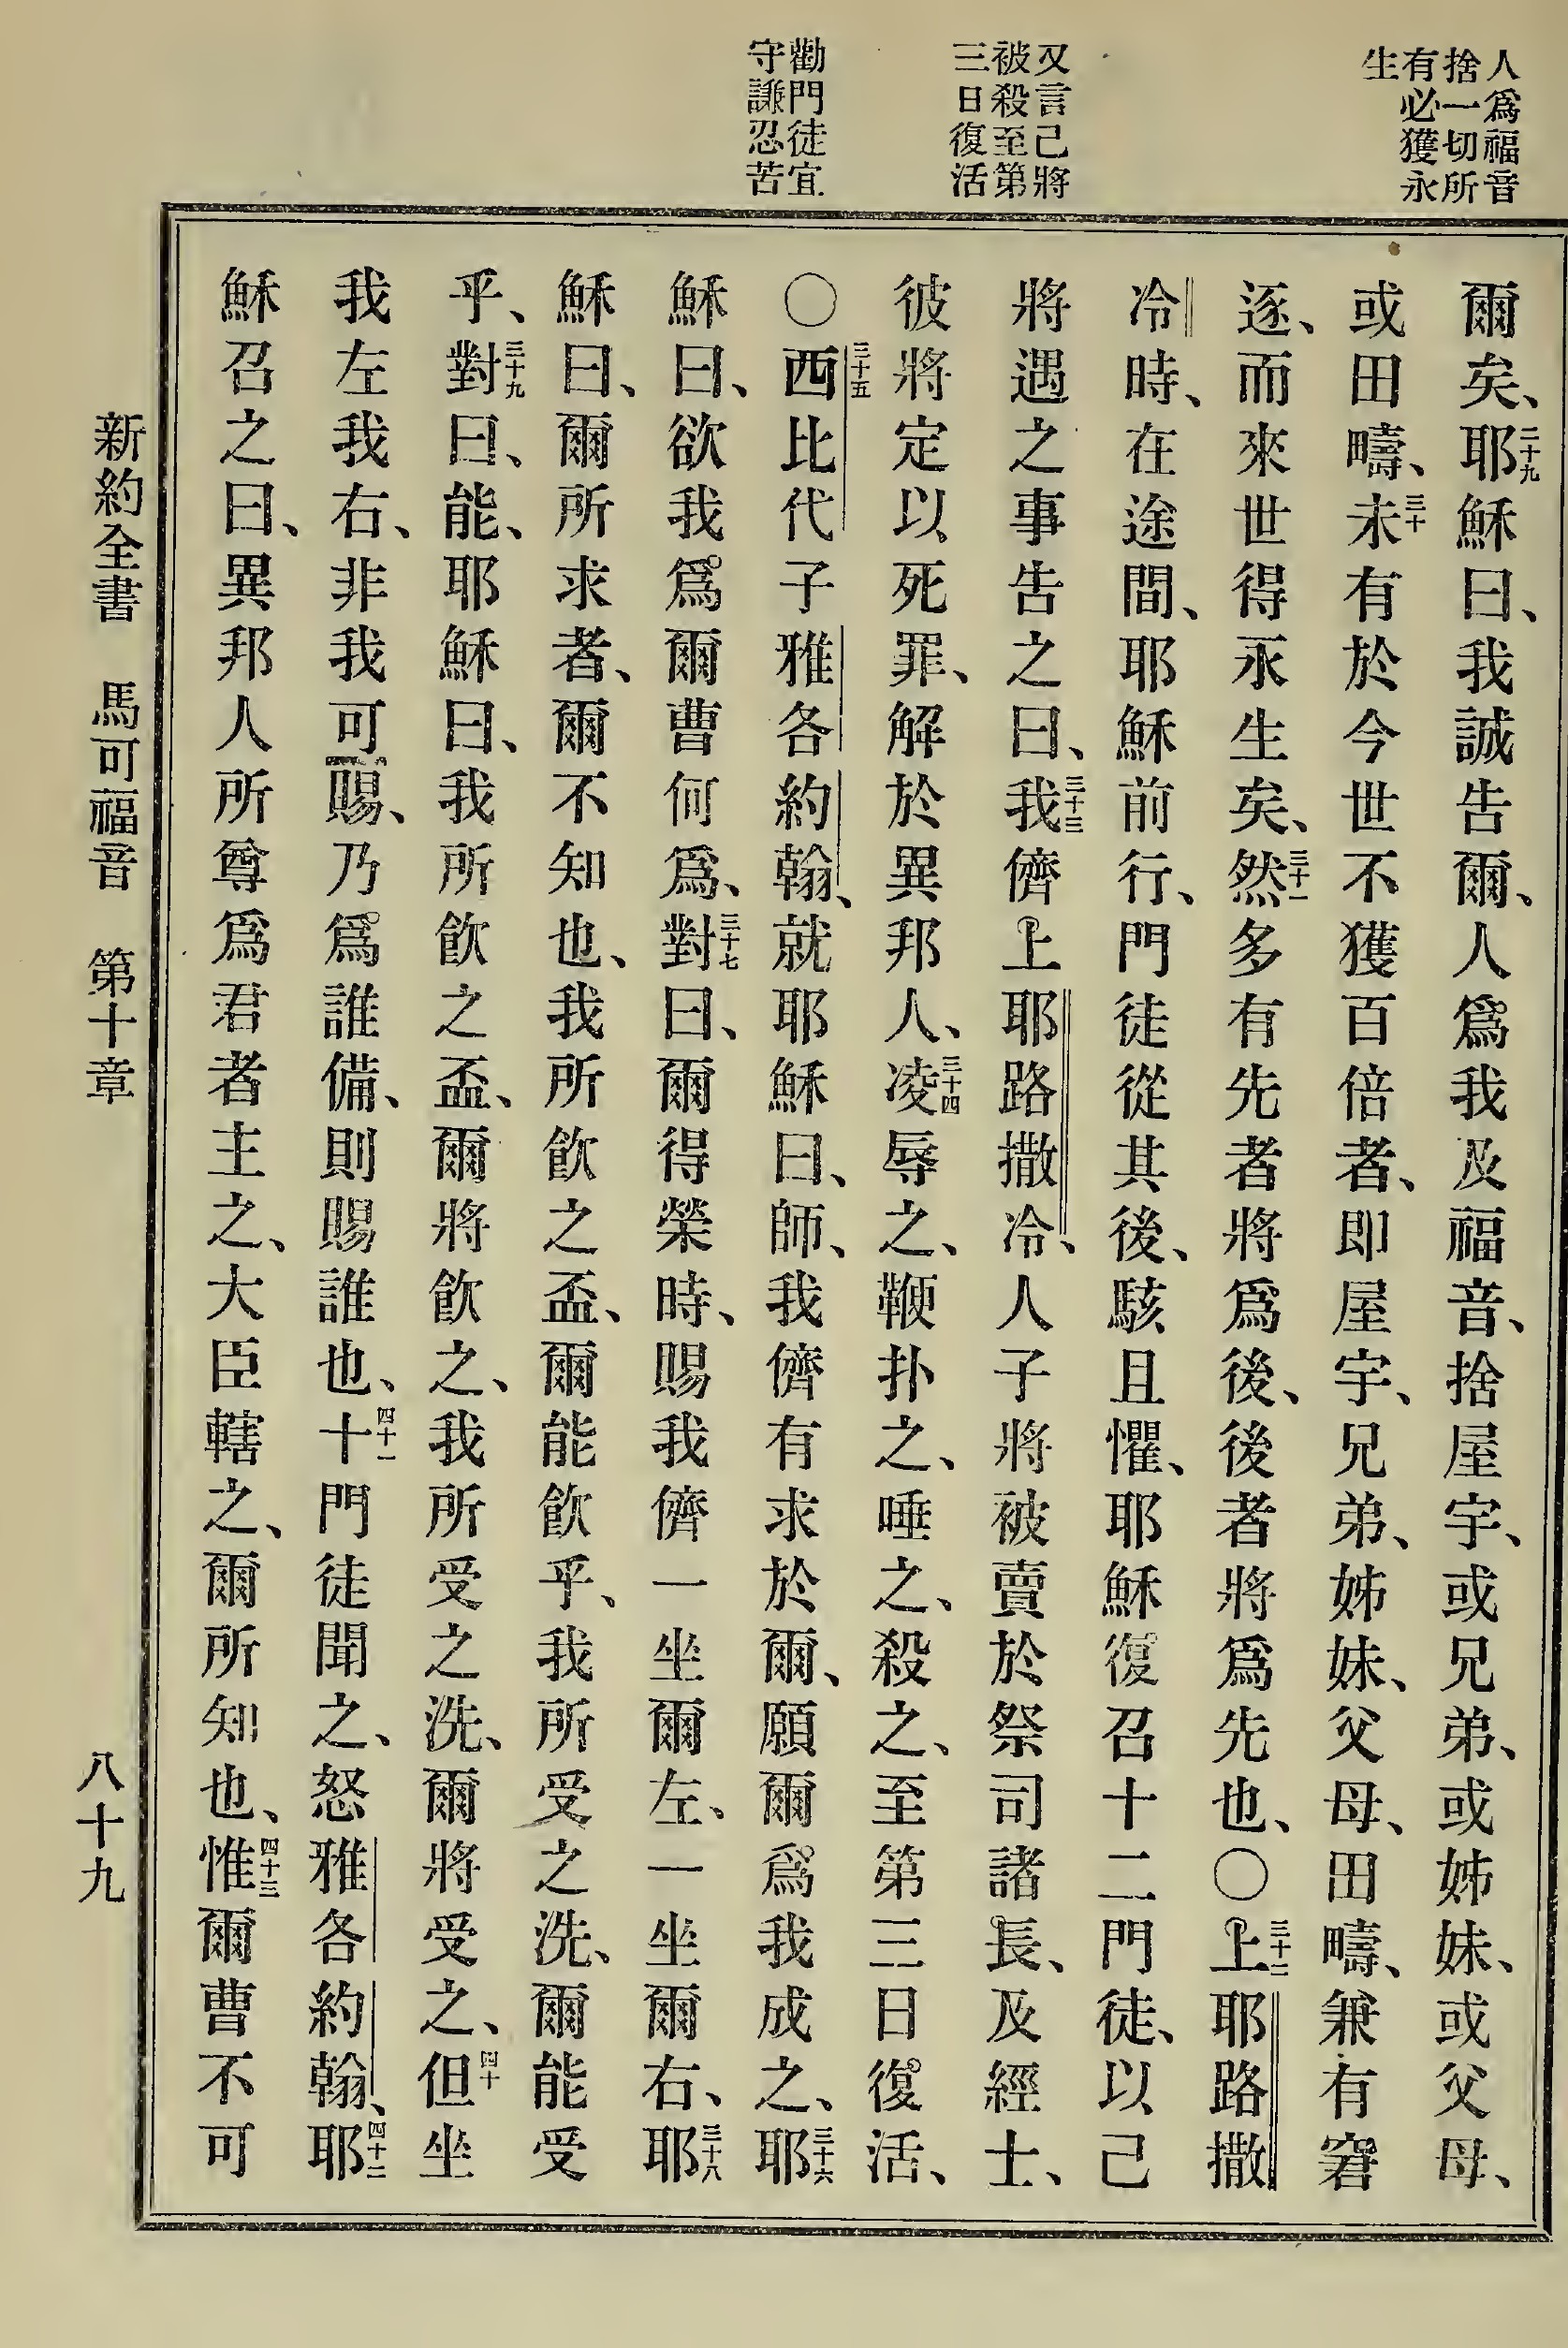 人爲福音
捨一切所
有必獲永
生
又言己將
被殺至第
三日復活
勸門徒宜
守謙忍苦
爾矣、二十九耶穌曰、我誠吿爾、人爲我及福音、捨屋宇、或兄弟、或姊妹、或父母、
或田疇、三十未有於今世不獲百倍者、卽屋宇、兄弟、姊妹、父母、田疇、兼有窘
逐、而來世得永生矣、三十一然多有先者將爲後、後者將爲先也、〇三十二上耶路撒
冷時、在途間、耶穌前行、門徒從其後、駭且懼、耶穌復召十二門徒、以己
將遇之事吿之曰、三十三我儕上耶路撒冷、人子將被賣於祭司諸長、及經士、
彼將定以死罪、解於異邦人、三十四凌辱之、鞭扑之、唾之、殺之、至第三日復活、
〇三十五西比代子雅各約翰、就耶穌曰、師、我儕有求於爾、願爾爲我成之、三十六耶
穌曰、欲我爲爾曹何爲、三十七對曰、爾得榮時、賜我儕一坐爾左、一坐爾右、三十八耶
穌曰、爾所求者、爾不知也、我所飮之盃、爾能飮乎、我所受之洗、爾能受
乎、三十九對曰、能、耶穌曰、我所飮之盃、爾將飮之、我所受之洗、爾將受之、四十但坐
我左我右、非我可賜、乃爲誰備、則賜誰也、四十一十門徒聞之、怒雅各約翰、四十二耶
穌召之曰、異邦人所尊爲君者主之、大臣轄之、爾所知也、四十三惟爾曹不可
新約全書 馬可福音 第十章 八十九